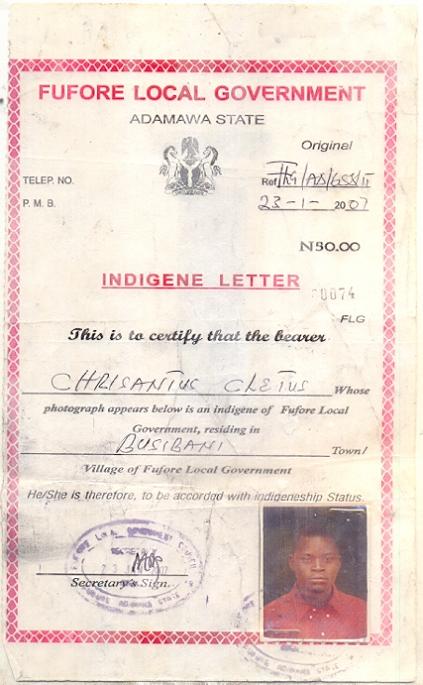 FUFORE LOCAL GOVERNMENT
ADAMAWA STATE
Original
TELEP. NO.
Ref
P. M. B.
23-1- 2007
₦50.00
INDIGENE LETTER
00074
FLG
This is to certify that the bearer
CHRISANTUS CLETUS Whose
photograph appears below is an indigene of Fufore Local
Government, residing in
BUSIBANI Town/
Village of Fufore Local Government
He/She is therefore, to be accorded with indigeneship Status.
Secretary's Sign.